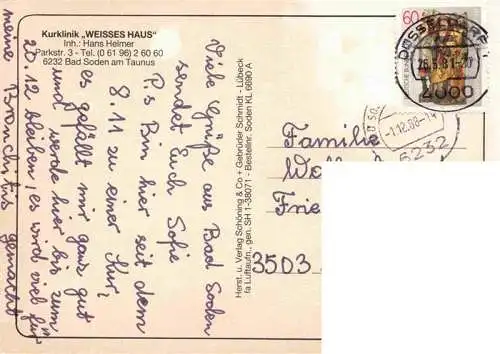 Kurklinik „WEISSES HAUS"
Inh.: Hans Helmer
Parkstr. 3 - Tel. (0 61 96) 2 60 60
6232 Bad Soden am Taunus
Viele Grüße aus Bad Soden
sendet Euch Sofie
P.s Bin hier seit dem
8.11 zu einer Kur,
es gefällt mir ganz gut
und werde hier bis zum
20.12 bleiben, es wird viel für
meine Bronchitis gemacht
Herst. u. Verlag Schöning & Co + Gebrüder Schmidt - Lübeck
fa Luftaufn., gen. SH 1-38071 - Bestellnr. Soden KL 6690 A
60
DÜSSELDORF
26.5.81-20
4000
-1.12.88-14
6232
Familie
Frie
3503